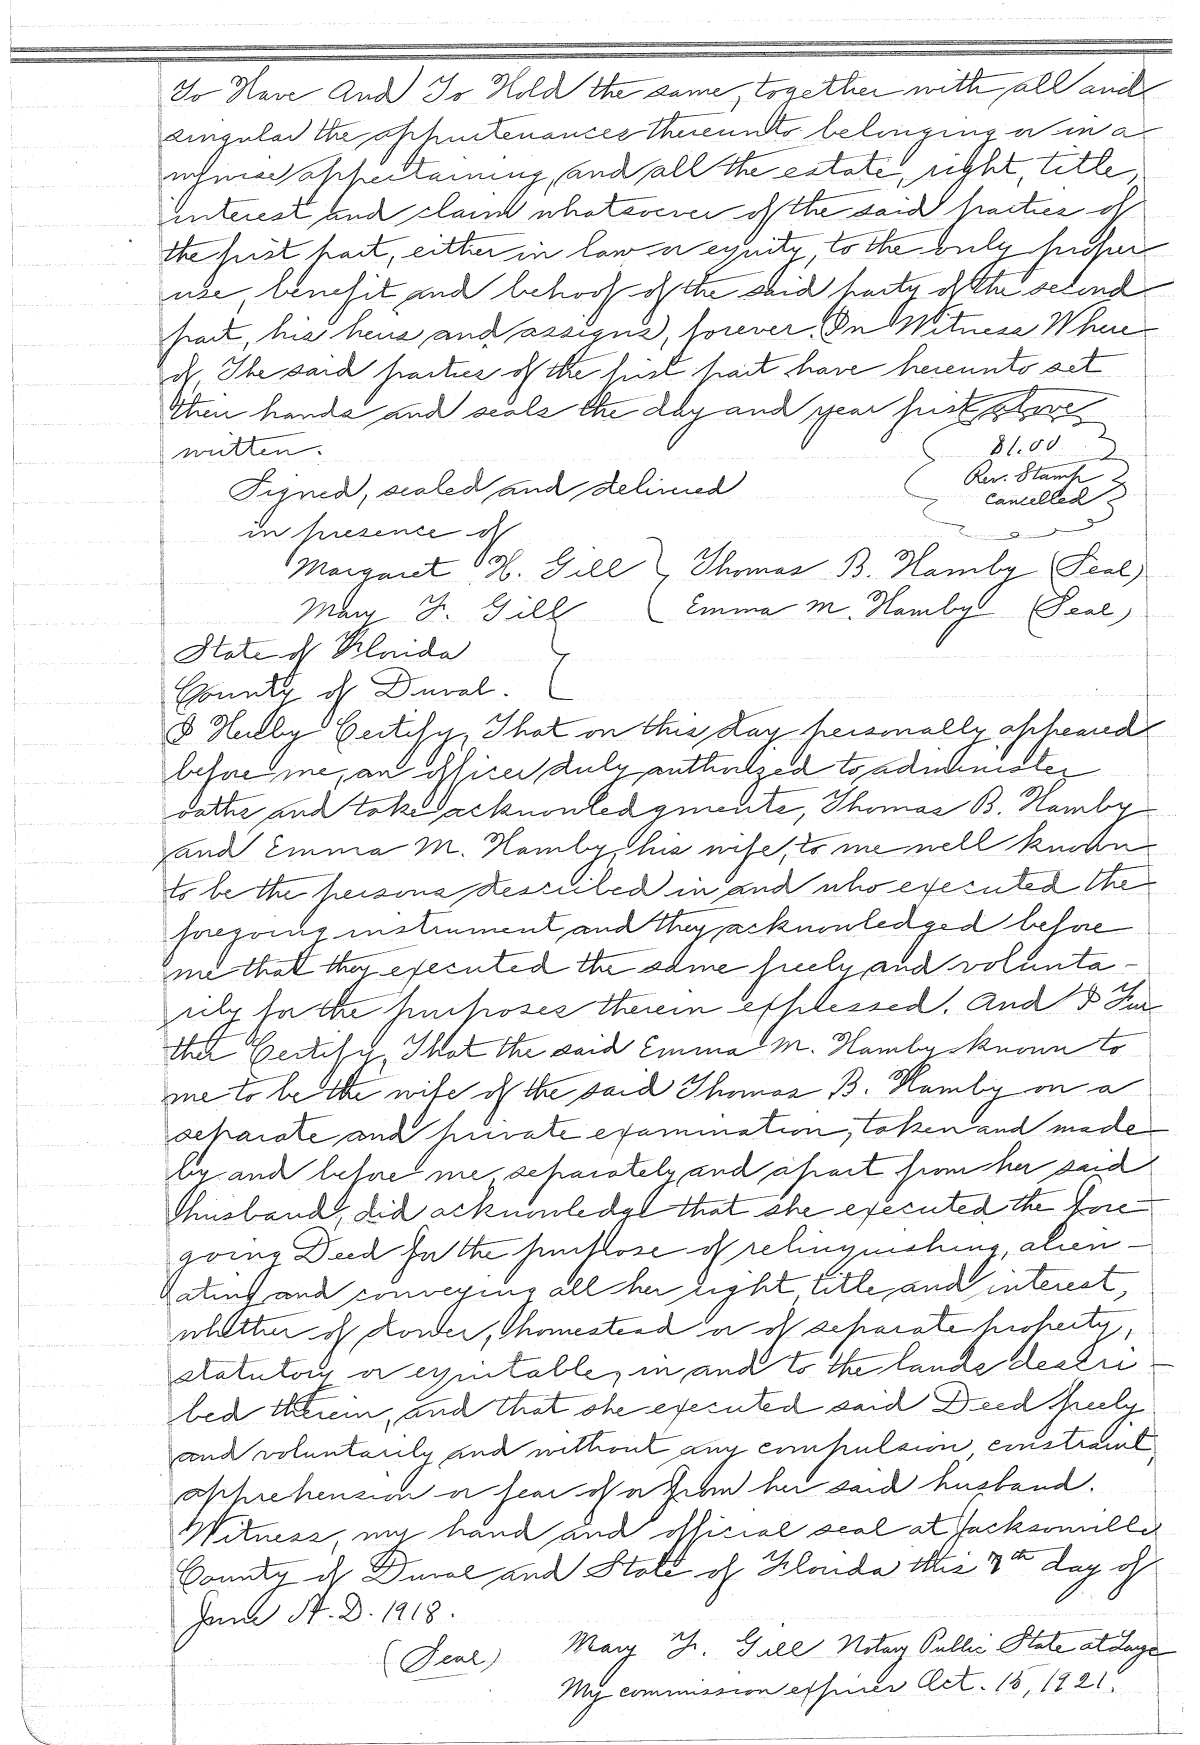 To Have And To Hold the same, together with all and
singular the appurtenances thereunto belonging or in a
nywise appertaining, and all the estate, right, title,
interest and claim whatsoever of the said parties of
the first part, either in law or equity, to the only proper
use, benefit and behoof of the said party of the second
part, his heirs and assigns, forever. In Witness Where
of, The said parties of the first part have hereunto set
their hands and seals the day and year first above
written.
$1.00
Rev. Stamp
Cancelled
Signed, sealed and delivered
in presence of
Margaret H. Gill } Thomas B. Hamby (Seal)
Mary F. Gill { Emma M. Hamby (Seal)
State of Florida
County of Duval.
I Hereby Certify, That on this day personally appeared
before me, an officer duly authorized to administer
oaths and take acknowledgments, Thomas B. Hamby
and Emma M. Hamby, his wife, to me well known
to be the persons described in and who executed the
foregoing instrument and they acknowledged before
me that they executed the same freely and volunta-
rily for the purposes therein expressed. And I Fur
ther Certify, That the said Emma M. Hamby known to
me to be the wife of the said Thomas B. Hamby on a
separate and private examination, taken and made
by and before me, separately and apart from her said
husband, did acknowledge that she executed the fore-
going Deed for the purpose of relinquishing, alien-
ating and conveying all her right, title and interest,
whether of dower, homestead or of separate property,
statutory or equitable, in and to the lands descri-
bed therein, and that she executed said Deed freely
and voluntarily and without any compulsion, constraint,
apprehension or fear of or from her said husband.
Witness, my hand and official seal at Jacksonville
County of Duval and State of Florida this 7th day of
June A. D. 1918.
(Seal) Mary F. Gill Notary Public State at Large
My commission expires Oct. 15, 1921.